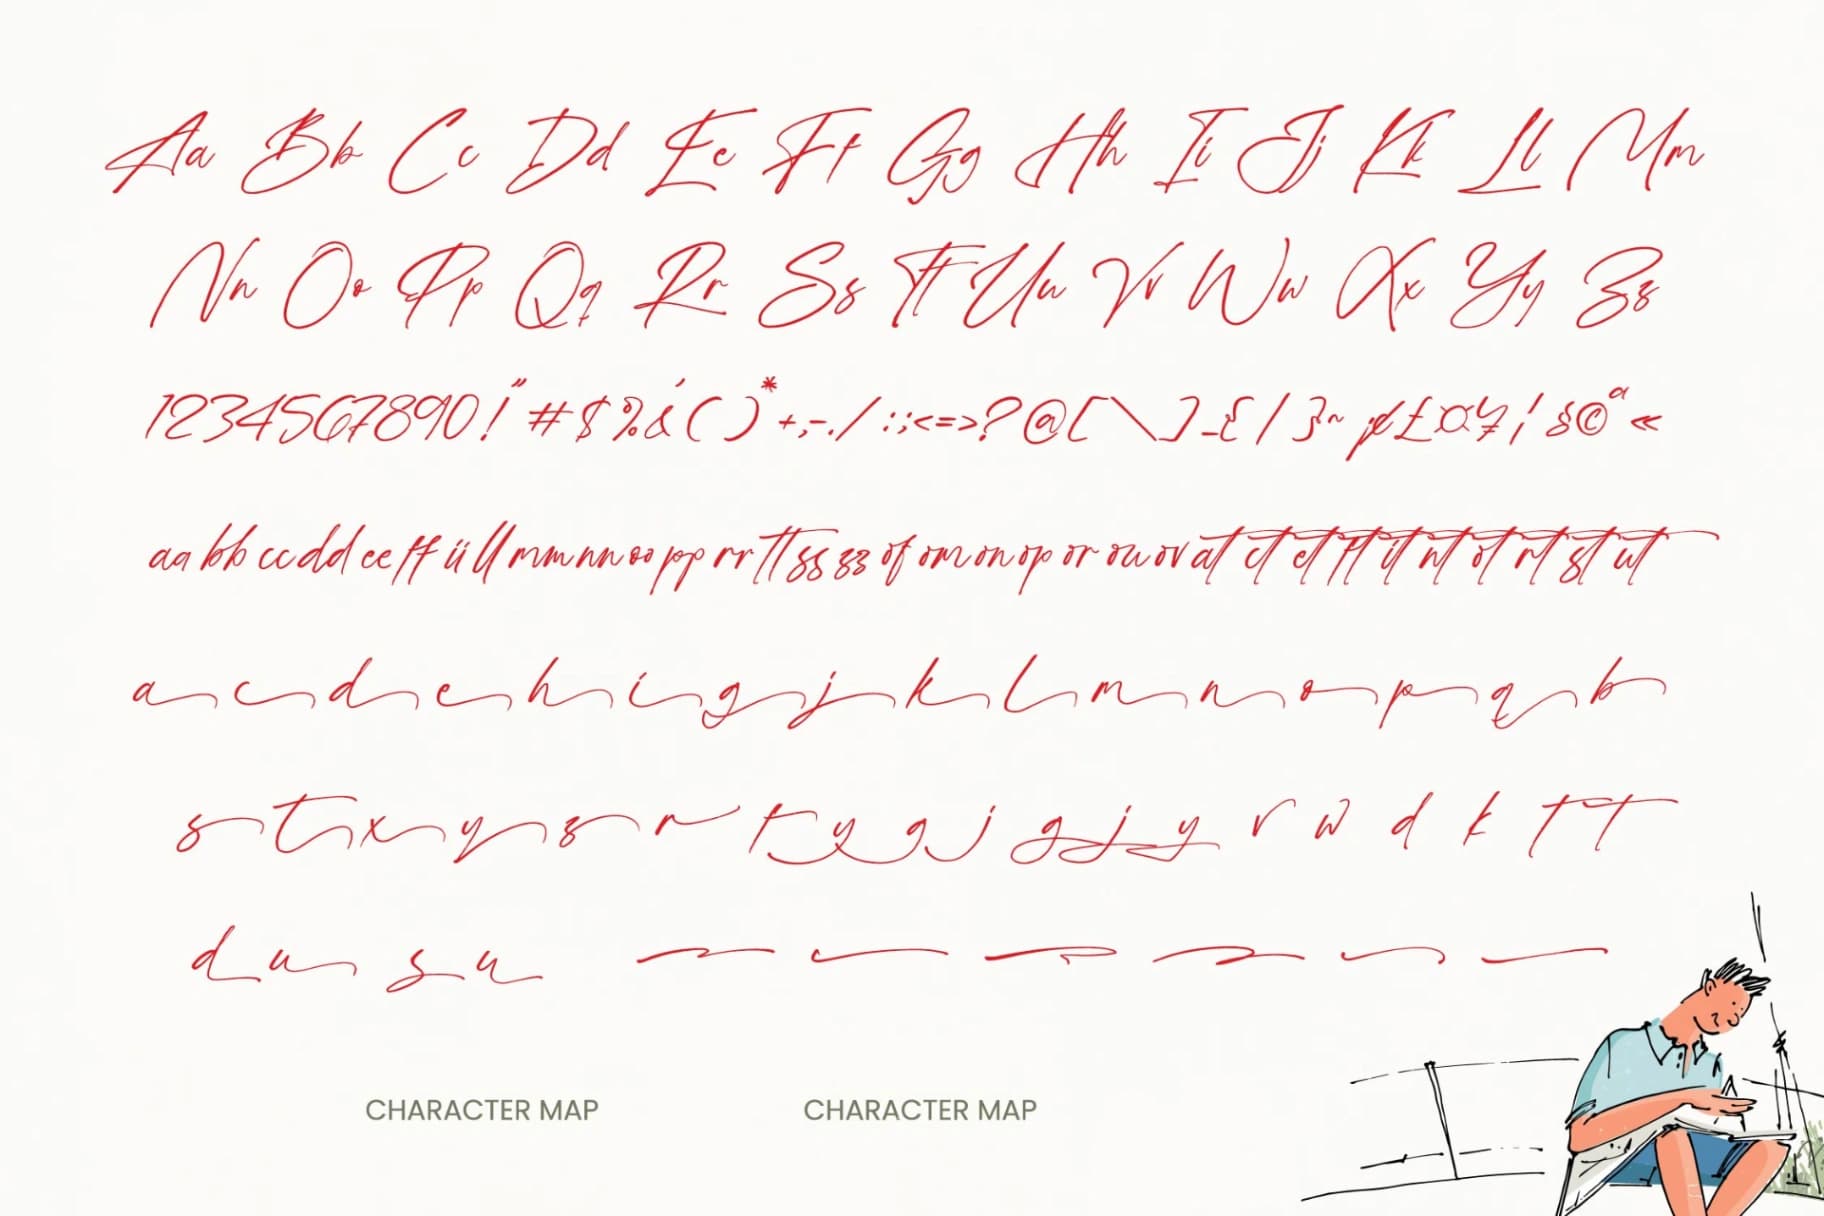 Aa Bb Cc Dd Ee Ff Gg Hh Ii Jj Kk Ll Mm
Nn Oo Pp Qq Rr Ss Tt Uu Vv Ww Xx Yy Zz
1234567890!"#$%&'()*+,-./:;<=>?@[\]_{|}~¢£¤¥¦§©ª«
aa bb cc dd ee ff ii ll mm nn oo pp rr tt ss zz of om on op or ou ov at ct et ft it nt ot rt st ut
a c d e h i g j k l m n o p q b
s t x y z r t y g j g j y r w d k t t
d u s u
CHARACTER MAP CHARACTER MAP